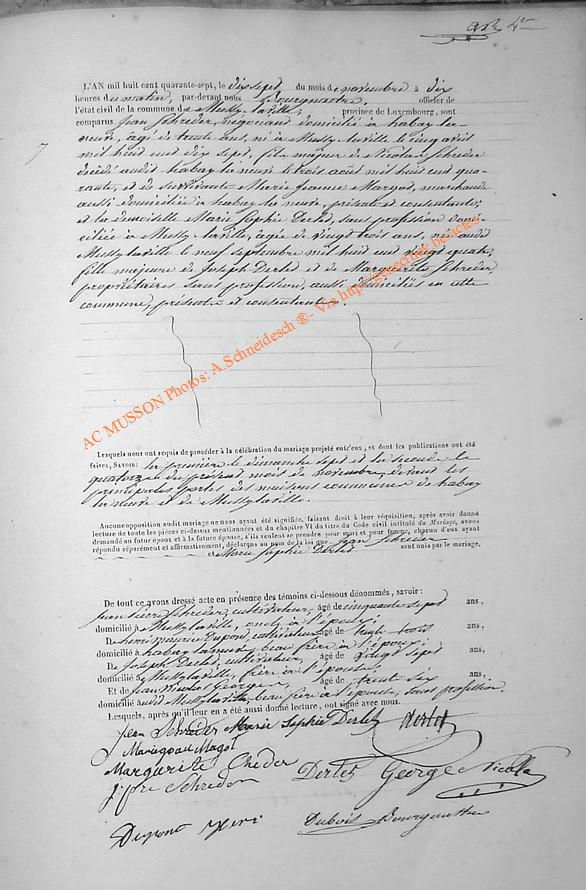 L'AN mil huit cent quarante-sept, le dix sept, du mois de novembre à dix
heures du matin, par-devant nous Bourgmestre, officier de
l'état civil de la commune de Mussy-laville, province de Luxembourg, sont
comparus Jean Schreder, négociant domicilié à habay la
neuve, âgé de trente ans, né à Mussy-laville le cinq avril
mil huit cent dix sept, fils majeur de Nicolas Schreder
décédé audit habay la neuve le trois août mil huit cent qua-
rante, et de survivante Marie Jeanne Margot, marchande
aussi domiciliée à habay la neuve, présente et consentante;
et la demoiselle Marie Sophie Derlet, sans profession domi-
ciliée à Mussy-laville, agée de vingt trois ans, née audit
Mussy-laville le neuf septembre mil huit cent vingt quatre,
fille majeure de Joseph Derlet et de Marguerite Schreder
propriétaires sans profession, aussi domiciliés en cette
commune, présents et consentants.
Lesquels nous ont requis de procéder à la célébration du mariage projeté entr'eux, et dont les publications ont été
faites, SAVOIR: la première le dimanche sept et la seconde le
quatorze du présent mois de novembre, devant les
principales portes des maisons communes de habay
la neuve et de Mussy-laville.
Aucune opposition audit mariage ne nous ayant été signifiée, faisant droit à leur réquisition, après avoir donné
lecture de toute les pièces ci-dessus mentionnées et du chapitre VI du titre du Code civil intitulé du Mariage, avons
demandé au futur époux et à la future épouse, s'ils veulent se prendre pour mari et pour femme, chacun d'eux ayant
répondu séparément et affirmativement, déclarons au nom de la loi que Jean Schreder
& Marie Sophie Derlet sont unis par le mariage.
De tout ce avons dressé acte en présence des témoins ci-dessous dénommés, savoir:
Jean Pierre Schreder, cultivateur, âgé de cinquante sept ans,
domicilié à Mussy-laville, oncle à l'épouse;
De henri maurice Dupont, cultivateur, âgé de trente trois ans,
domicilié à habay la neuve, beau frère à l'époux;
De Joseph Derlet, cultivateur, âgé de vingt sept ans,
domicilié à Mussy-laville, frère à l'épouse;
Et de Jean Nicolas Georges, âgé de trente six ans,
domicilié audit Mussy-laville, beau frère à l'épouse, sans profession.
Lesquels, après qu'il leur en a été aussi donné lecture, ont signé avec nous.
Jean Schreder Marie Sophie Derlet Derlet
Marie Magot
Marguerite Cheder
j: pre Schreder Derlet George Nicolas
Dupont Dubois Bourgmestre
AC MUSSON Photos: A.Schneidesch ®- Via http://geneachtoy.be/actes